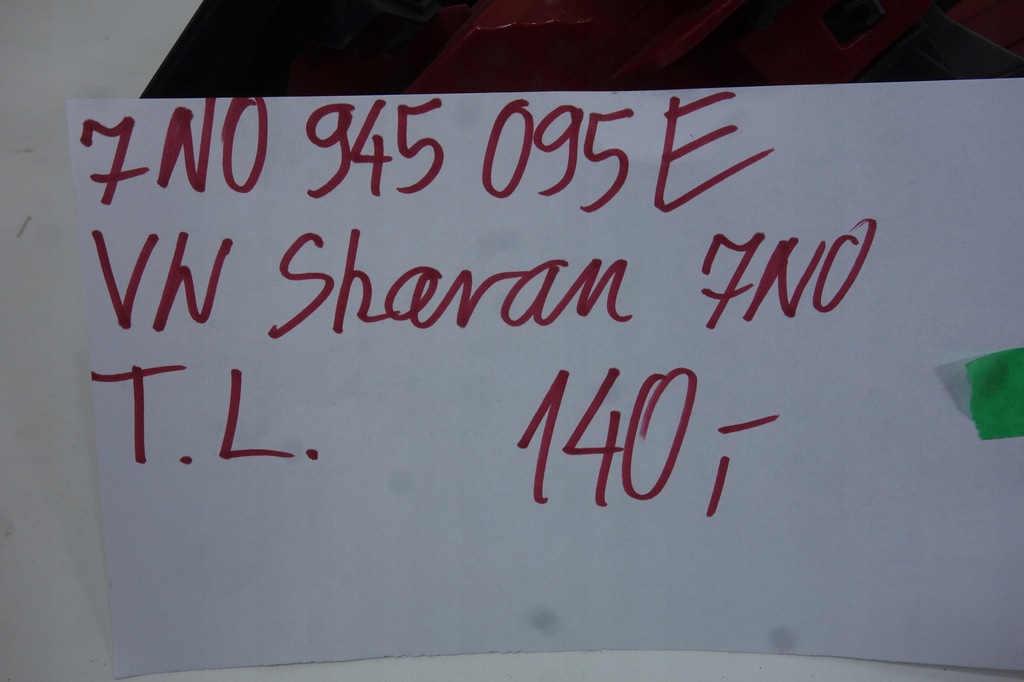 7N0 945 095 E
VW Sharan 7N0
T.L. 140,-